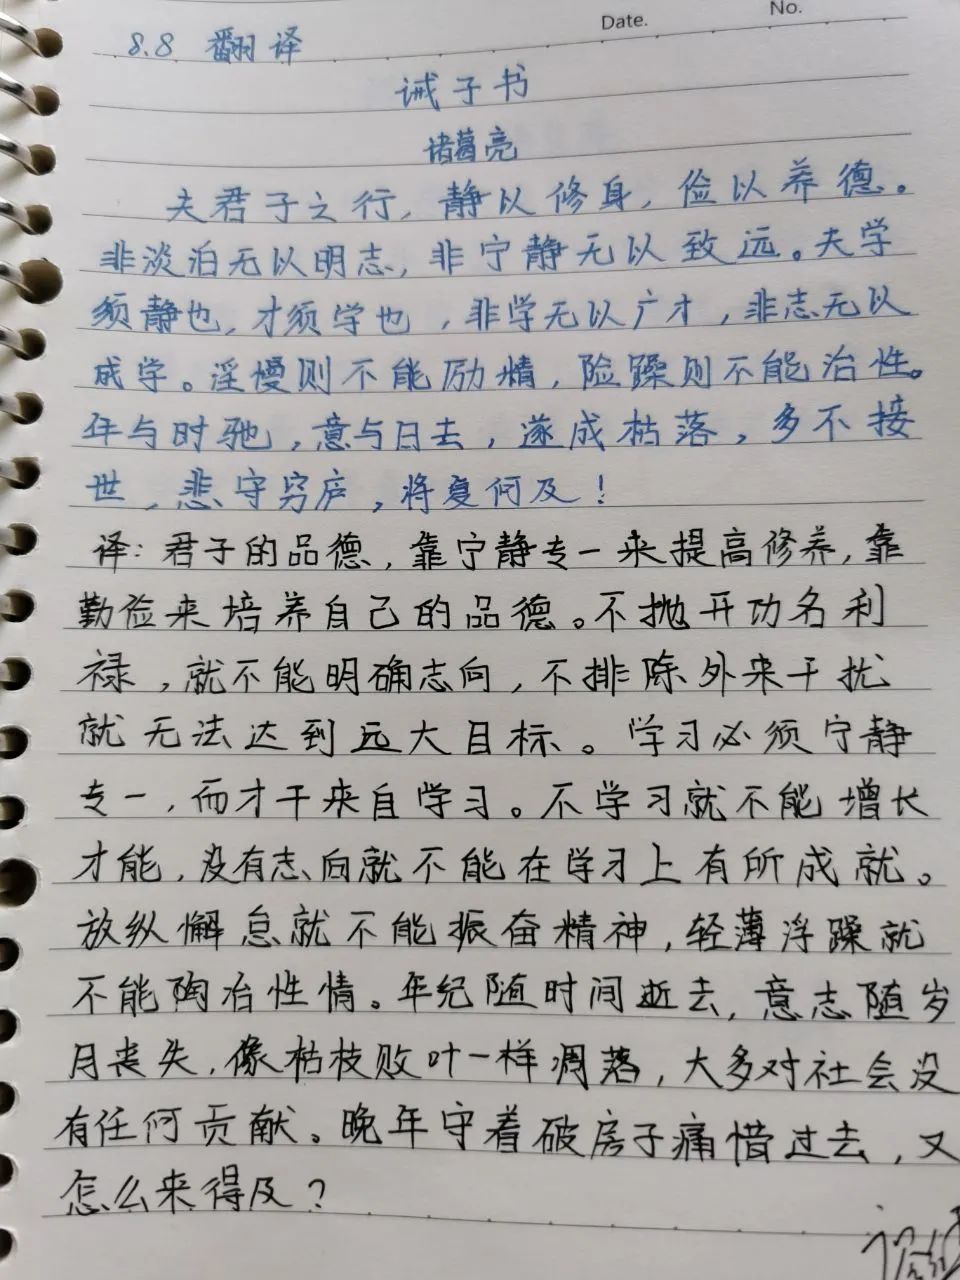 Date. No.
8.8 翻译
诫子书
诸葛亮
夫君子之行,静以修身,俭以养德。
非淡泊无以明志,非宁静无以致远。夫学
须静也,才须学也,非学无以广才,非志无以
成学。淫慢则不能励精,险躁则不能治性。
年与时驰,意与日去,遂成枯落,多不接
世,悲守穷庐,将复何及!
译:君子的品德,靠宁静专一来提高修养,靠
勤俭来培养自己的品德。不抛开功名利
禄,就不能明确志向,不排除外来干扰
就无法达到远大目标。学习必须宁静
专一,而才干来自学习。不学习就不能增长
才能,没有志向就不能在学习上有所成就。
放纵懈怠就不能振奋精神,轻薄浮躁就
不能陶冶性情。年纪随时间逝去,意志随岁
月丧失,像枯枝败叶一样凋落,大多对社会没
有任何贡献。晚年守着破房子痛惜过去,又
怎么来得及?